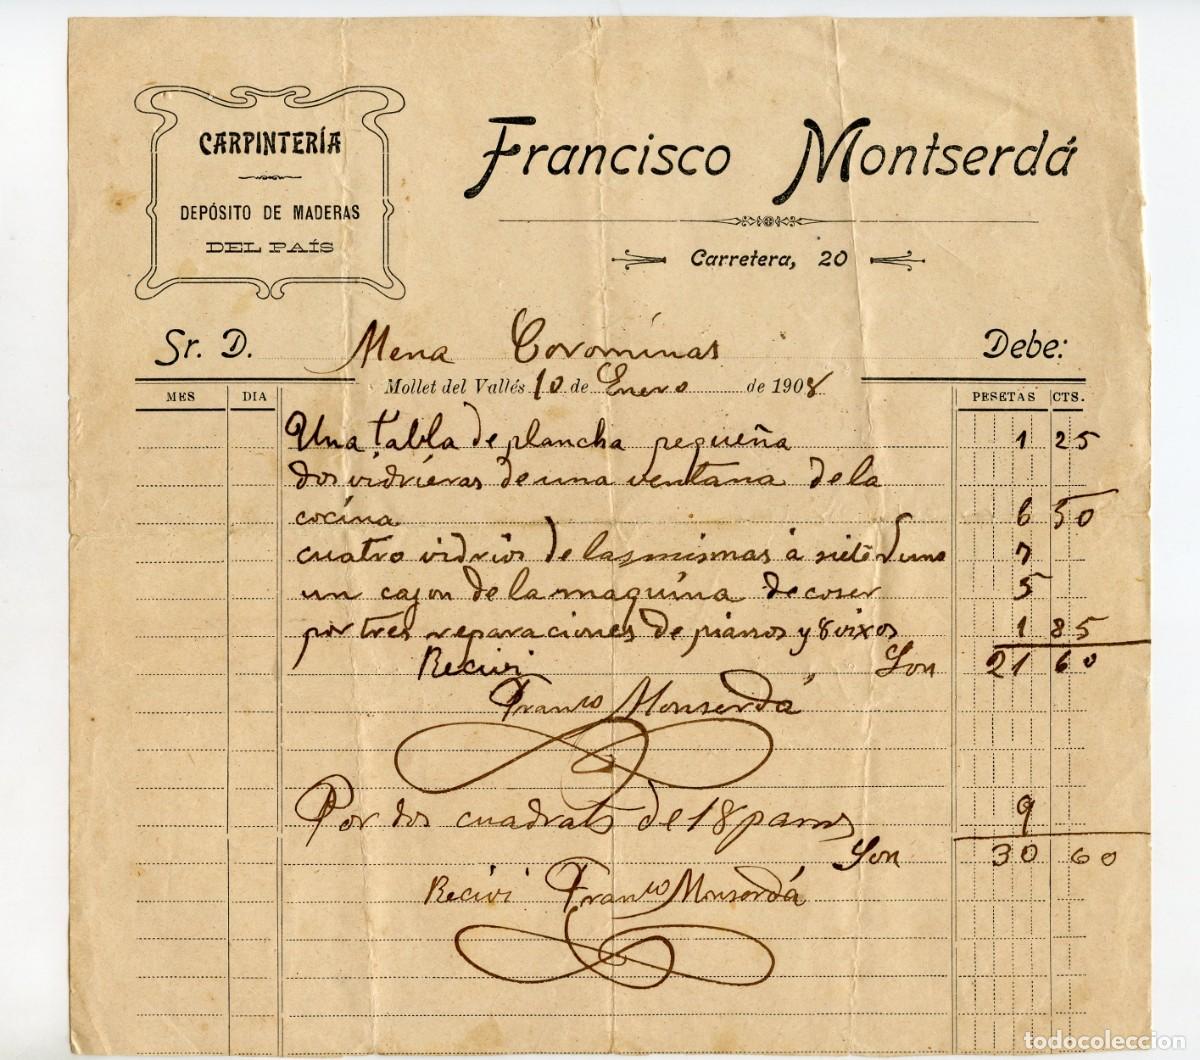 CARPINTERÍA
DEPÓSITO DE MADERAS
DEL PAÍS
Francisco Montserdá
Carretera, 20
Sr. D. Mena Corominas Debe:
Mollet del Vallés 10 de Enero de 1908
MES DIA PESETAS CTS.
Una tabla de plancha pequeña 1 25
dos vidrieras de una ventana de la
cocina 6 50
cuatro vidrios de las mismas á siete d uno 7
un cajon de la maquina de coser 5
por tres reparaciones de pianos y 8 vixos 1 85
Recivi Son 21 60
Franco Monserdá
Por dos cuadrats de 18 pams 9
Son 30 60
Recivi Franco Monserdá
todocoleccion